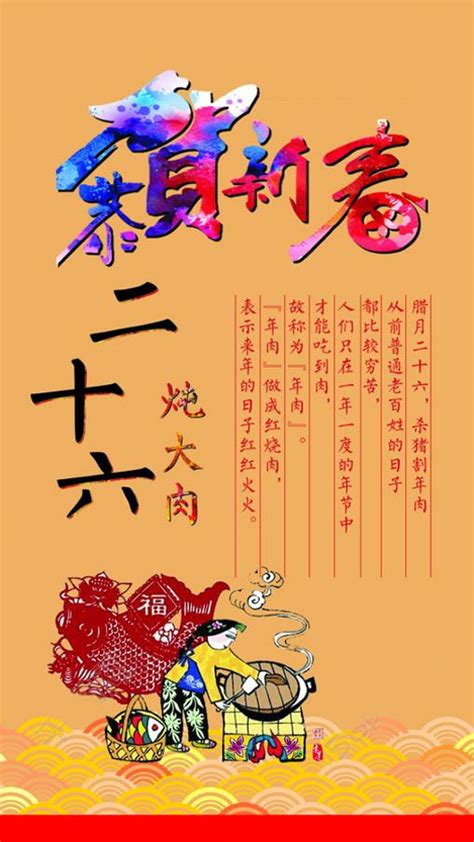 恭贺新春
二十六
炖大肉
腊月二十六，杀猪割年肉
从前普通老百姓的日子
都比较穷苦，
人们只在一年一度的年节中
才能吃到肉，
故称为『年肉』。
『年肉』做成红烧肉，
表示来年的日子红红火火。
福